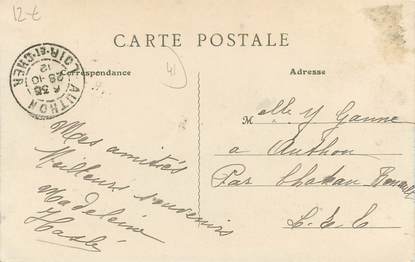 12 €
CARTE POSTALE
Correspondance
41
Adresse
AUTHON
LOIR-ET-CHER
6 35
28-10
12
Mes amitiés
Meilleurs souvenirs
Madeleine
Melle Y Ganne
a Authon
Par Chateau Renault
L. & C